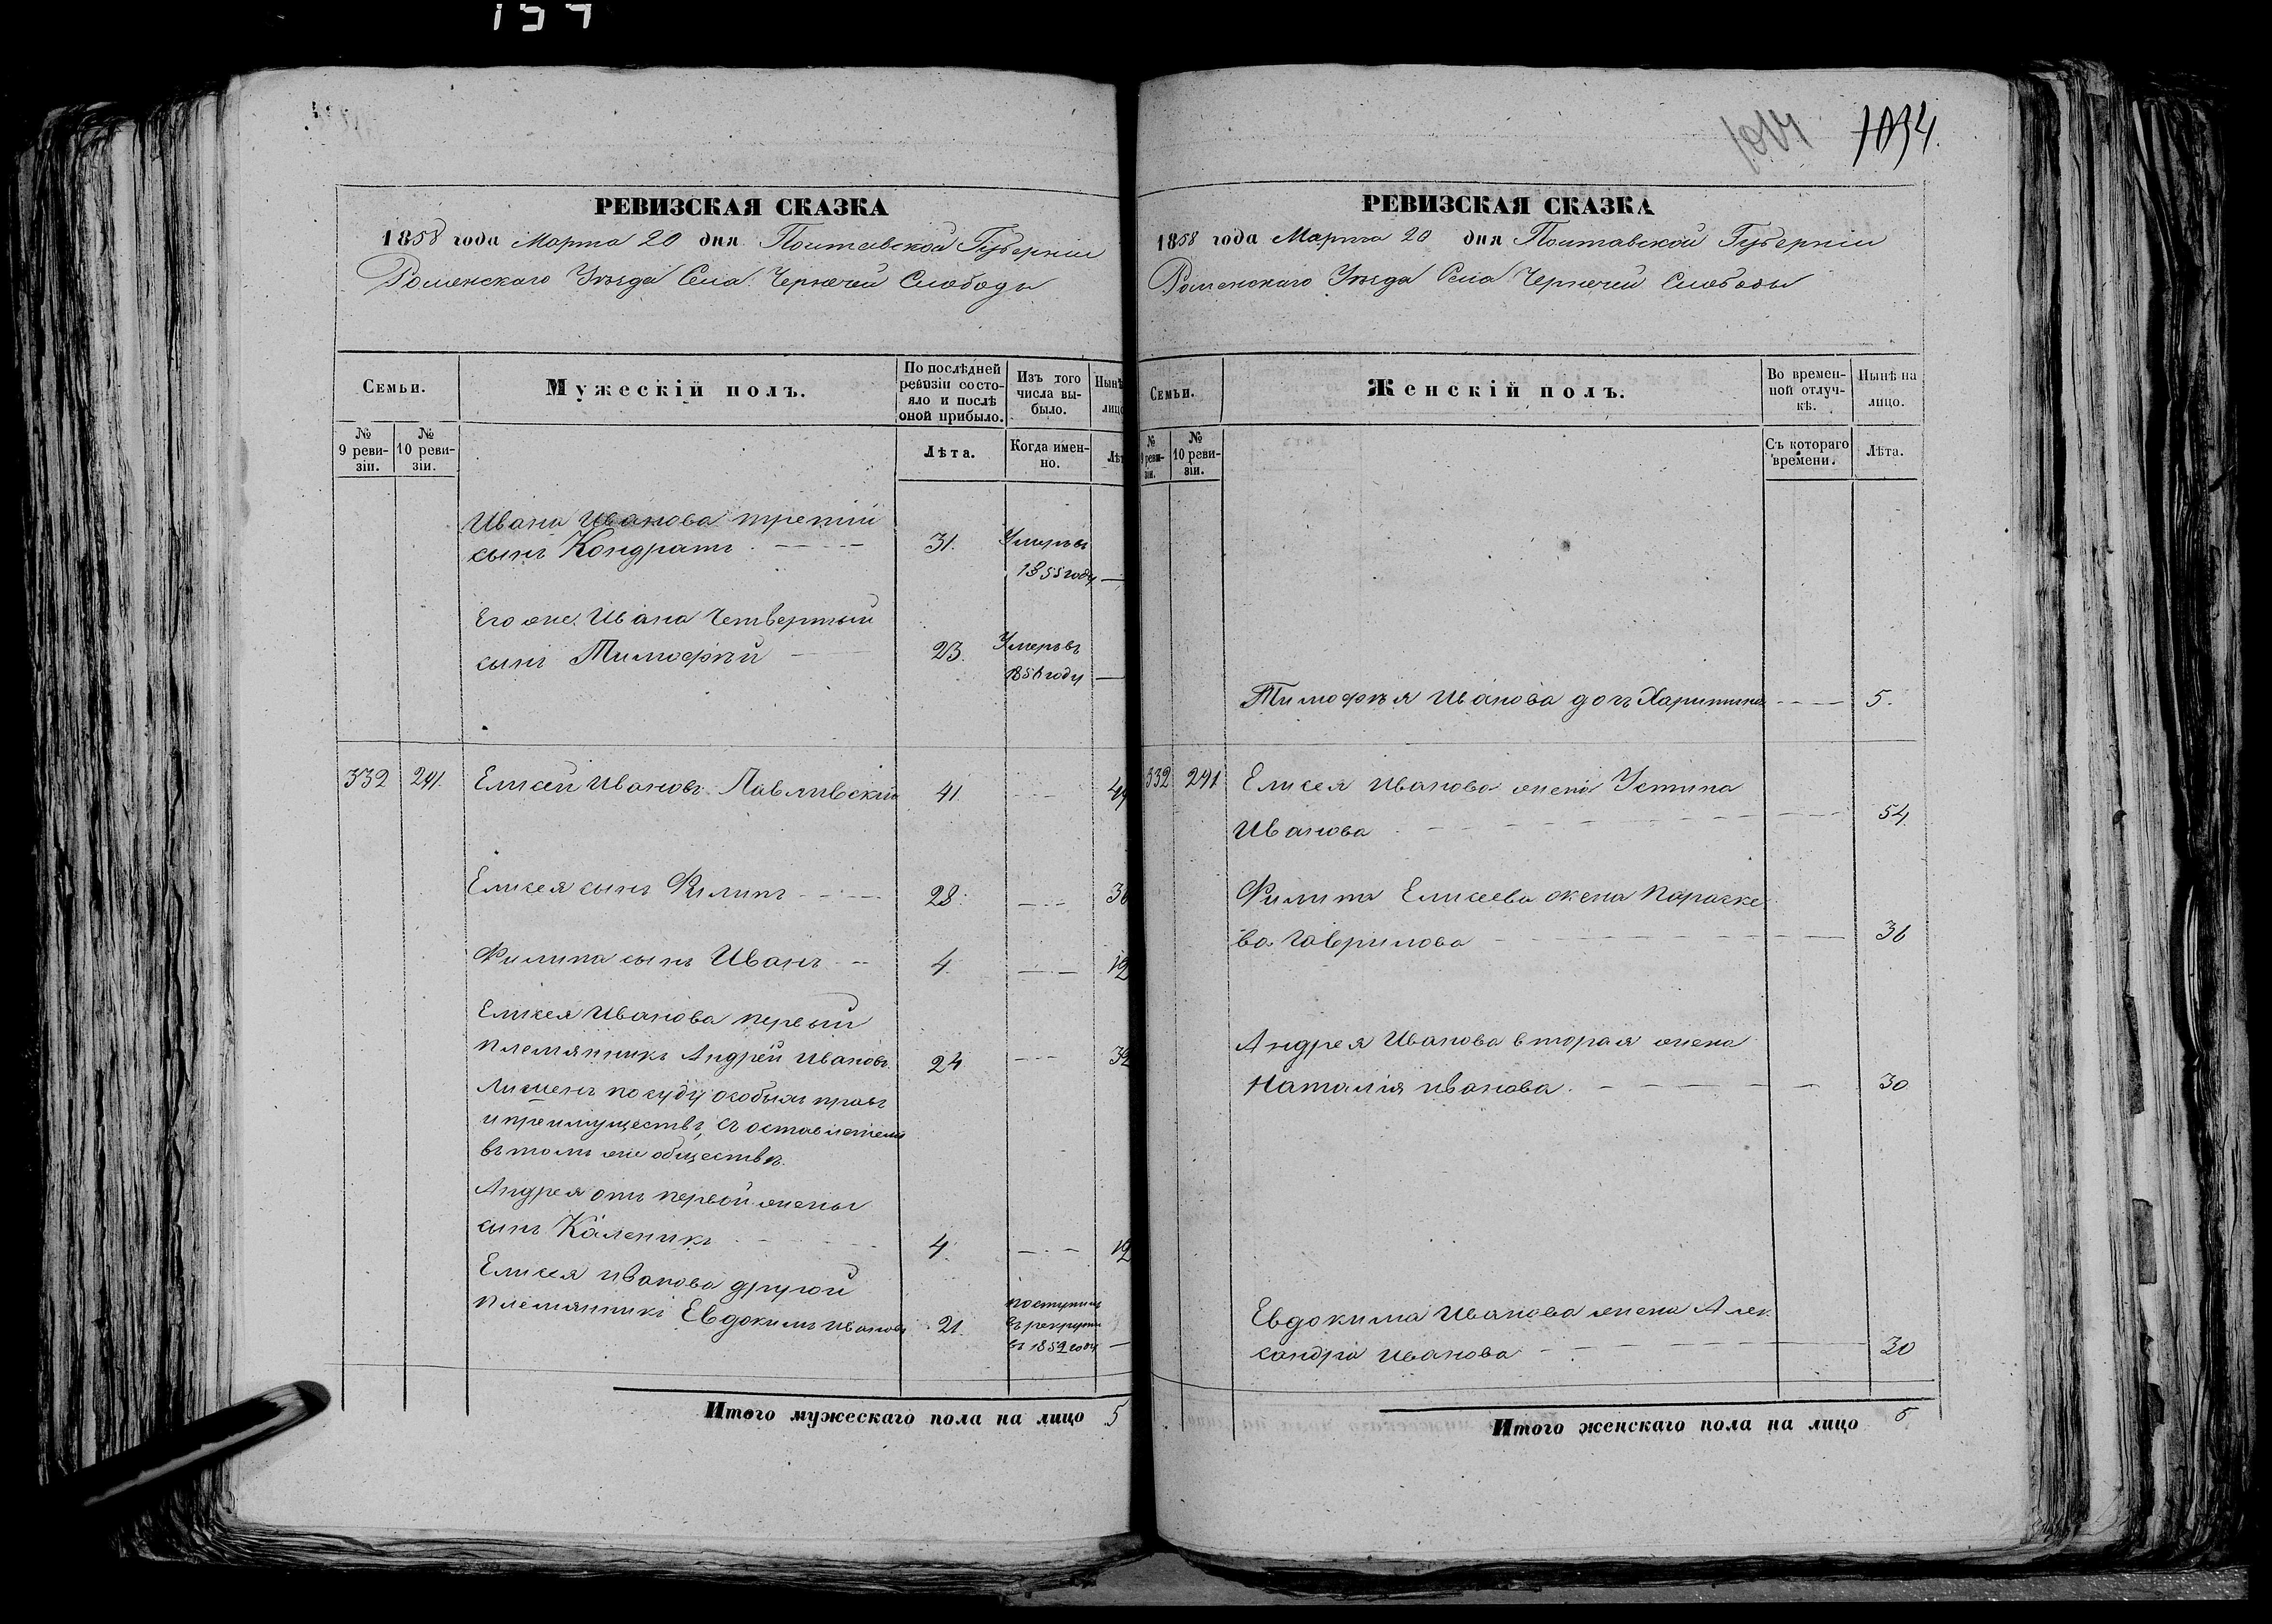 1014 1034.
РЕВИЗСКАЯ СКАЗКА
1858 года Марта 20 дня Полтавской Губерніи
Роменскаго Уѣзда Села Чернечей Слободы
Семьи.
Мужескій полъ.
По послѣдней ревизіи состояло и послѣ оной прибыло.
Изъ того числа выбыло.
Нынѣ
лицо
№ 9 ревизіи.
№ 10 ревизіи.
Лѣта.
Когда именно.
Лѣт
Ивана Иванова третій
сынъ Кондратъ 31. Умеръ въ
1855 году
Его же Ивана Четвертый
сынъ Тимофѣй 23. Умеръ въ
1856 году
332 241. Елисей Ивановъ Павливскій 41 49
Елисея сынъ Филипъ 28. 36
Филипа сынъ Иванъ 4 12
Елисея Иванова первый
племянникъ Андрей Ивановъ. 24 32
Лишенъ по суду особыхъ правъ
и преимуществъ, съ оставленіемъ
въ томъ же обществѣ.
Андрея отъ первой жены
сынъ Каленикъ 4. 12
Елисея Иванова другой
племянникъ Евдокимъ Ивановъ 21. поступилъ
въ рекруты
въ 1852 году
Итого мужескаго пола на лицо 5
РЕВИЗСКАЯ СКАЗКА
1858 года Марта 20 дня Полтавской Губерніи
Роменскаго Уѣзда Села Чернечей Слободы
Семьи.
Женскій полъ.
Во временной отлучкѣ.
Нынѣ на лицо.
№ 9 ревизіи.
№ 10 ревизіи.
Съ котораго времени.
Лѣта.
Тимофѣя Иванова дочь Харитина 5.
332 241 Елисея Иванова жена Устина
Иванова 54.
Филипа Елисеева жена Параске
ва Гаврилова 36
Андрея Иванова вторая жена
Наталія Иванова. 30
Евдокима Иванова жена Алек
сандра Иванова 30
Итого женскаго пола на лицо 5